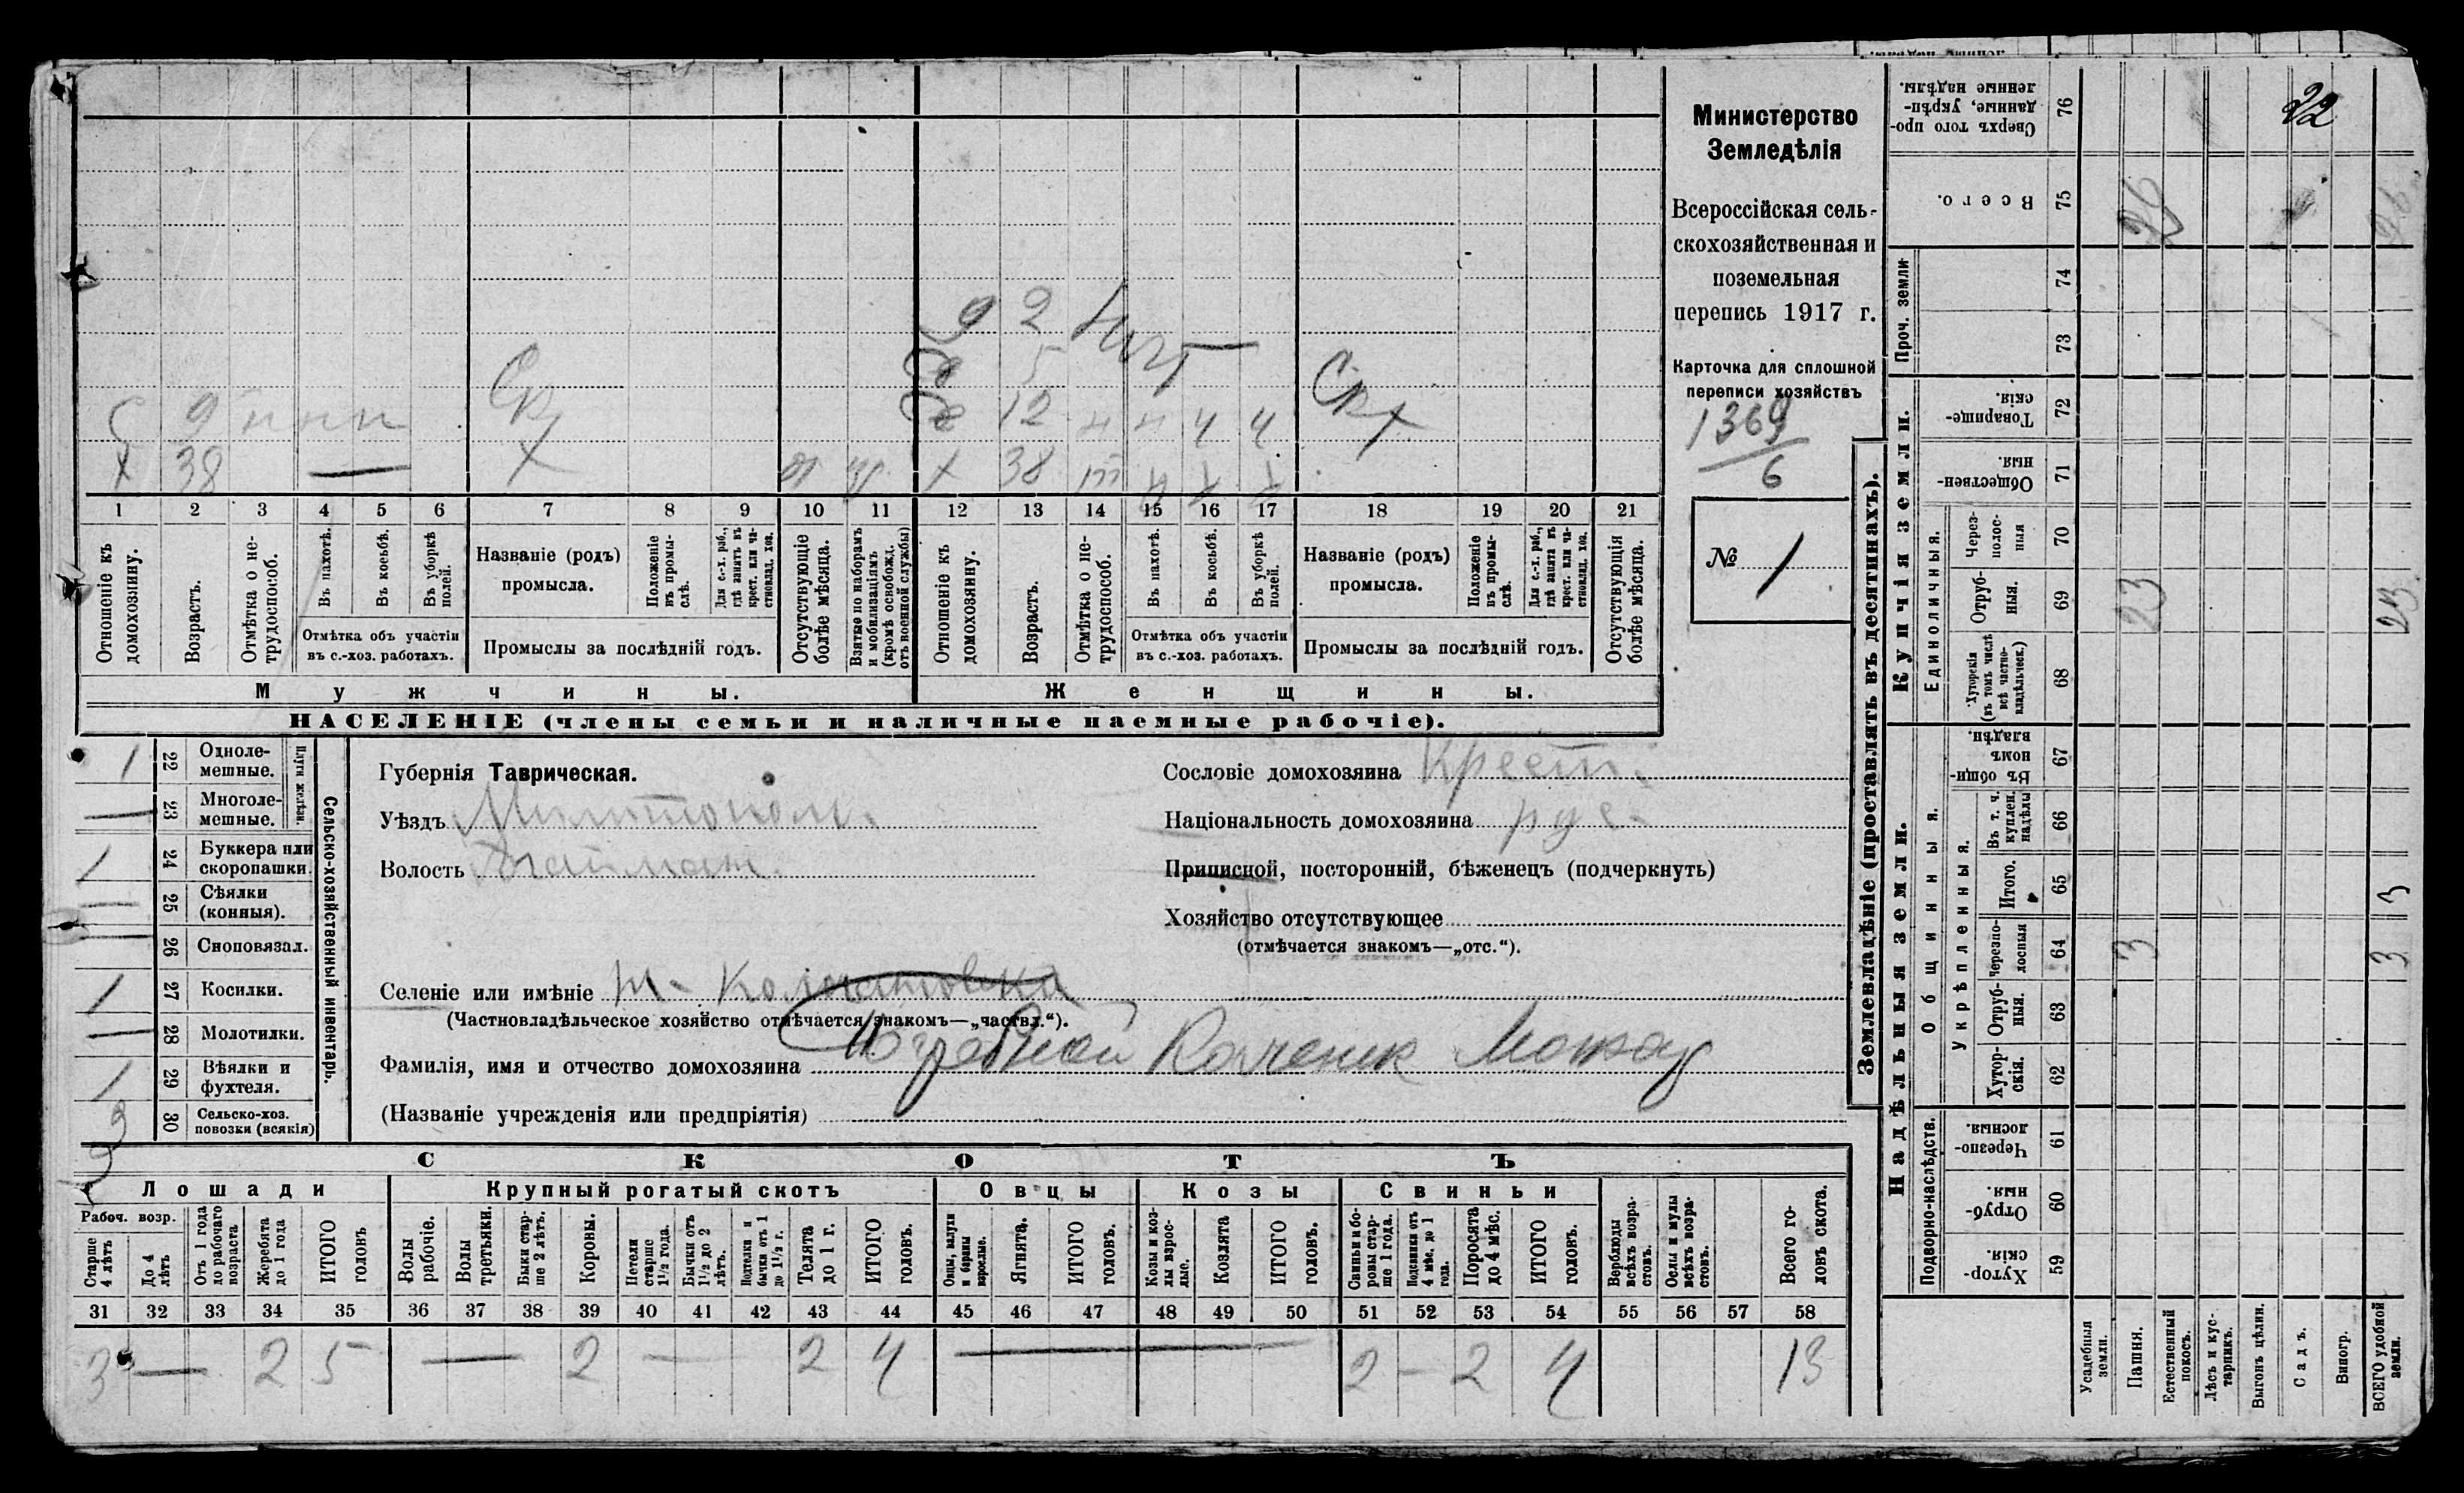 Министерство
Земледѣлія
Всероссійская сель-
скохозяйственная и
поземельная
перепись 1917 г.
Карточка для сплошной
переписи хозяйствъ
1369
6
№ 1
9 2
5
С 9 н н н
Ск
12 н н ч ч
Ск
X 38 —
X
X 38
1 2 3 4 5 6 7 8 9 10 11 12 13 14 15 16 17 18 19 20 21
Отношеніе къ домохозяину.
Возрастъ.
Отмѣтка о не-трудоспособ.
Въ пахотѣ.
Въ косьбѣ.
Въ уборкѣ полей.
Отмѣтка объ участіи
въ с.-хоз. работахъ.
Названіе (родъ)
промысла.
Положеніе въ промы-слѣ.
Для с.-х. раб., гдѣ занятъ въ крест. или ча-стновлад. хоз.
Промыслы за послѣдній годъ.
Отсутствующіе болѣе мѣсяца.
Взятые по наборамъ и мобилизаціямъ (кромѣ освобожд. отъ военной службы)
Отношеніе къ домохозяину.
Возрастъ.
Отмѣтка о не-трудоспособ.
Въ пахотѣ.
Въ косьбѣ.
Въ уборкѣ полей.
Отмѣтка объ участіи
въ с.-хоз. работахъ.
Названіе (родъ)
промысла.
Положеніе въ промы-слѣ.
Для с.-х. раб., гдѣ занята въ крест. или ча-стновлад. хоз.
Промыслы за послѣдній годъ.
Отсутствующія болѣе мѣсяца.
Мужчины.
Женщины.
НАСЕЛЕНІЕ (члены семьи и наличные наемные рабочіе).
1 22 Одноле-мешные.
— 23 Многоле-мешные.
Плуги желѣзн.
1 24 Буккера или скоропашки.
— 25 Сѣялки (конныя).
— 26 Сноповязал.
1 27 Косилки.
— 28 Молотилки.
1 29 Вѣялки и фухтеля.
3 30 Сельско-хоз. повозки (всякія)
Сельско-хозяйственный инвентарь.
Губернія Таврическая.
Уѣздъ Мелитопол.
Волость
Селеніе или имѣніе
(Частновладѣльческое хозяйство отмѣчается знакомъ—„частвл.“).
Фамилія, имя и отчество домохозяина
(Названіе учрежденія или предпріятія)
Сословіе домохозяина Крест.
Національность домохозяина рус.
Приписной, посторонній, бѣженецъ (подчеркнуть)
Хозяйство отсутствующее
(отмѣчается знакомъ—„отс.“).
СКОТЪ
Лошади
Крупный рогатый скотъ
Овцы
Козы
Свиньи
Рабоч. возр.
Старше 4 лѣтъ
До 4 лѣтъ
Отъ 1 года до рабочаго возраста
Жеребята до 1 года
ИТОГО головъ
Волы рабочіе.
Волы третьяки.
Быки стар-ше 2 лѣтъ.
Коровы.
Нетели старше 1½ года.
Бычки отъ 1½ до 2 лѣтъ.
Подтелки и бычки отъ 1 до 1½ г.
Телята до 1 г.
ИТОГО головъ.
Овцы, валухи и бараны взрослые.
Ягнята.
ИТОГО головъ.
Козы и коз-лы взрос-лые.
Козлята
ИТОГО головъ.
Свиньи и бо-ровы стар-ше 1 года.
Подсвинки отъ 4 мѣс. до 1 года.
Поросята до 4 мѣс.
ИТОГО головъ.
Верблюды всѣхъ возра-стовъ.
Ослы и мулы всѣхъ возра-стовъ.
Всего го-ловъ скота.
31 32 33 34 35 36 37 38 39 40 41 42 43 44 45 46 47 48 49 50 51 52 53 54 55 56 57 58
3 — 2 5 — 2 — 2 4 — 2 - 2 4 13
Землевладѣніе (проставлять въ десятинахъ).
Надѣльныя земли.
Купчія земли.
Проч. земли
Подворно-наслѣдств.
Общинныя.
Укрѣпленныя.
Единоличныя.
Сверхъ того про-данные, укрѣп-ленные надѣлы. 76 22
Всего. 75 26 26
74
73
Товарище-скія. 72
Обществен-ныя. 71
Через-полос-ныя 70
Отруб-ныя. 69 23 23
Хуторскія (въ томъ числѣ всѣ частно-владѣльческ.) 68
Въ общин-номъ владѣн. 67
Въ т. ч. куплен. надѣлы 66
Итого. 65 3
Черезпо-лосныя 64 3 3
Отруб-ныя. 63
Хутор-скія. 62
Черезпо-лосныя. 61
Отруб-ныя. 60
Хутор-скія. 59
Усадебныя земли.
Пашня.
Естественный покосъ.
Лѣсъ и кус-тарникъ.
Выгонъ цѣлин.
Садъ.
Виногр.
ВСЕГО удобной земли.